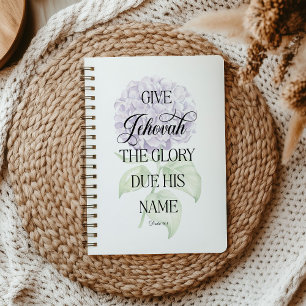 GIVE
Jehovah
THE GLORY
DUE HIS
NAME